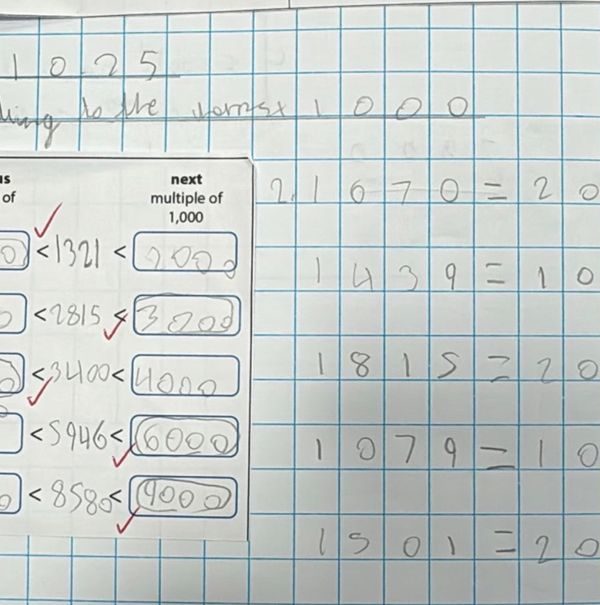 1025
to the 1000
us next
of multiple of
1,000
0 <1321 < 2000
0 <2815 < 3000
0 <3400< 4000
<5946< 6000
0 <8580< 9000
2. 1670=20
1439=10
1815=20
1079=10
1501=20